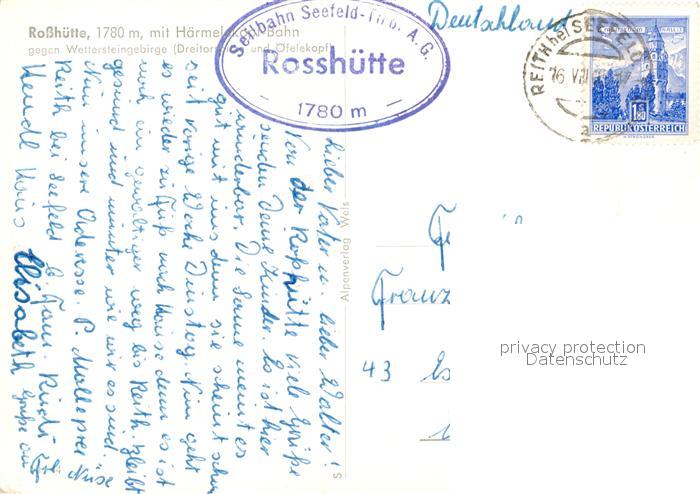 Roßhütte, 1780 m, mit Härmelekopf-Bahn
gegen Wettersteingebirge (Dreitorspitze und Öfelekopf)
Seilbahn Seefeld-Tirol A.G.
Rosshütte
- 1780 m -
Deutschland
REITH bei SEEFELD
16. VIII
1.80
REPUBLIK ÖSTERREICH
Lieber Vater u. lieber Walter!
Von der Roßhütte viele Grüße
senden Deine Kinder. Es ist hier
wunderbar. Die Sonne meint es
gut mit uns denn sie scheint schon
seit vorige Woche Dienstag. Nun geht
es wieder zu Fuß nach Hause denn es ist
noch ein gewaltiger weg bis Reith. bleibt
gesund und munter wie wir es sind.
Nun unsere Adresse. P.
Reith bei Seefeld b. Fam.
Haus
Elisabeth Grüße
Alpenverlag Wels
Franz
43
privacy protection
Datenschutz